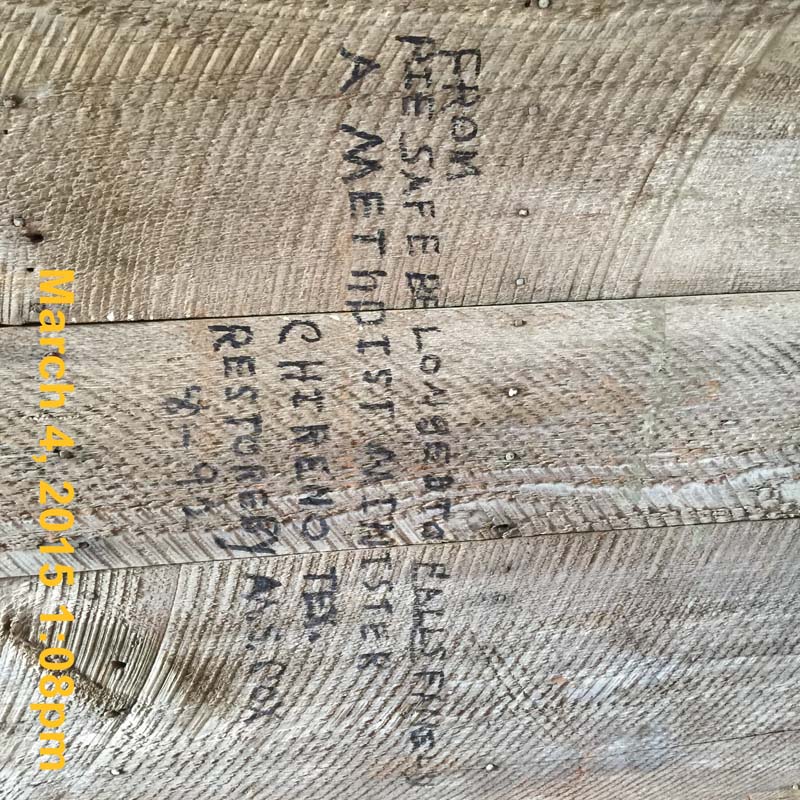 FROM
PIE SAFE BELONGED TO FAMELY
A METhDIST MINISTER
CHIRENO TEX.
RESTOREBY COX
8-92
March 4, 2015 1:08pm